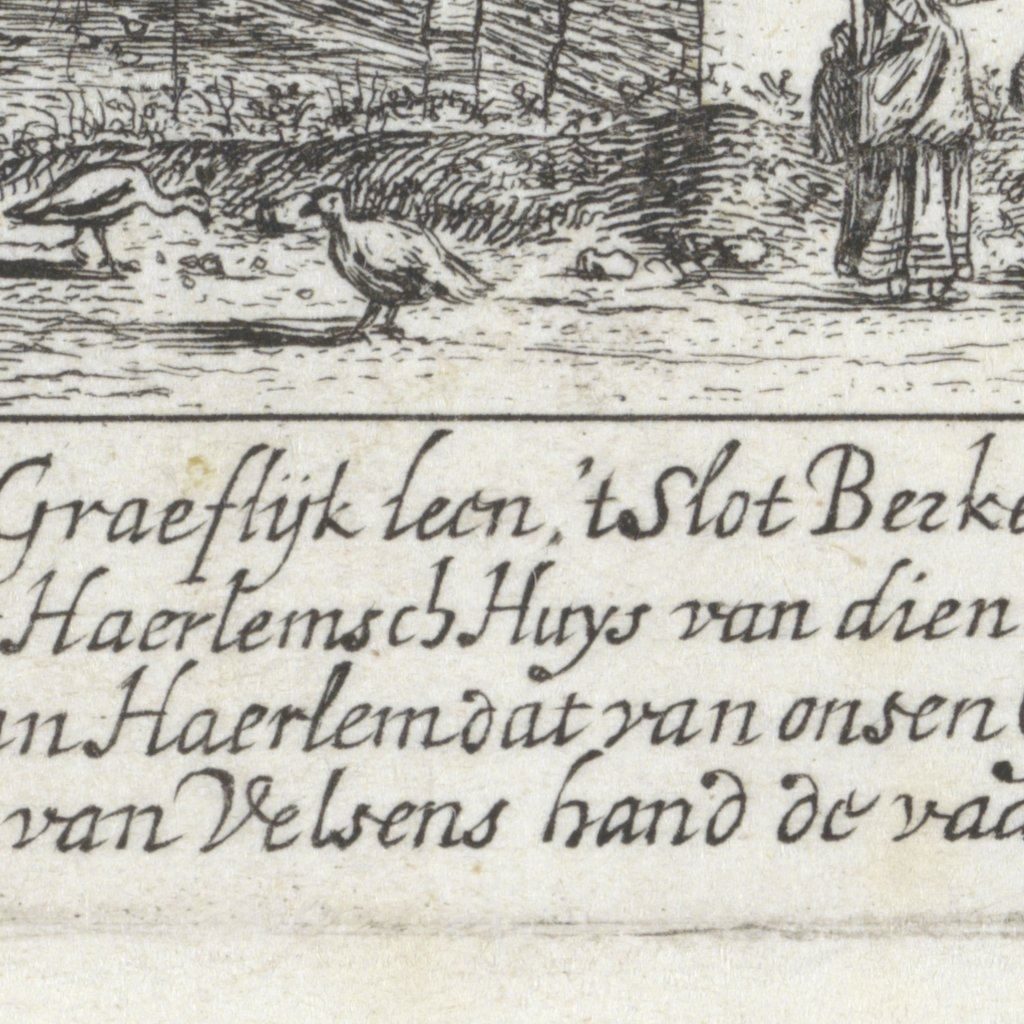 Graeflijk leen, 't Slot Berke
Haerlemsch Huys van dien
an Haerlem dat van onsen
van Velsens hand de vad